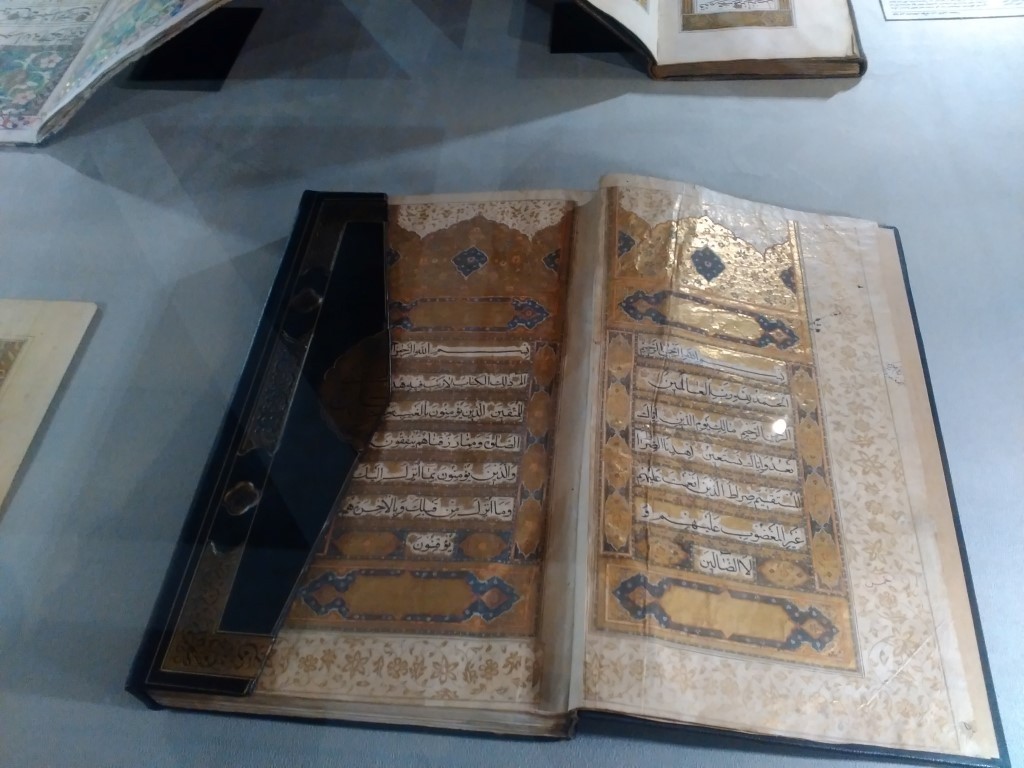 بسم الله الرحمن الرحيم
الحمد لله رب العالمين
الرحمن الرحيم مالك يوم الدين اياك
نعبد واياك نستعين اهدنا الصراط
المستقيم صراط الذين انعمت عليهم
غير المغضوب عليهم و
لا الضالين
بسم الله الرحمن
الم ذلك الكتاب لا ريب فيه هدى
للمتقين الذين يؤمنون بالغيب
الصلوة ومما رزقناهم ينفقون
والذين يؤمنون بما انزل اليك
وما انزل من قبلك وبالاخرة هم
يوقنون